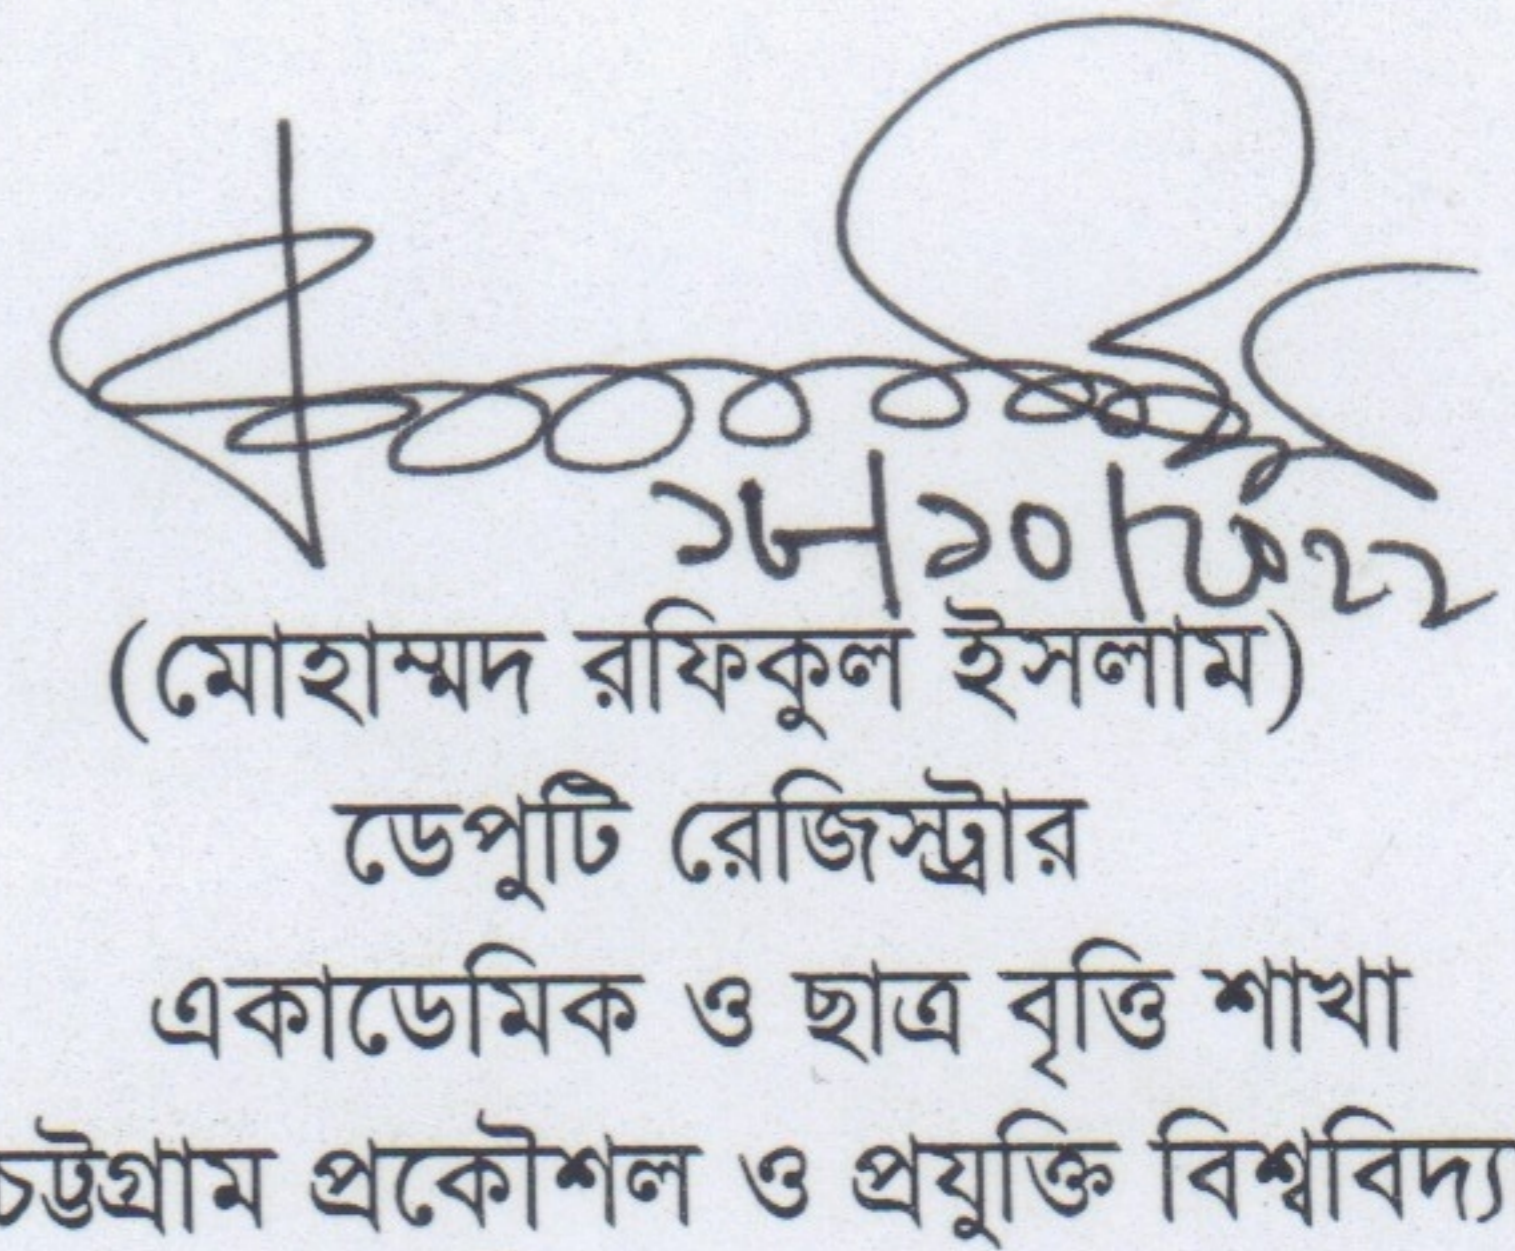 ১৮/১০/২০২২
(মোহাম্মদ রফিকুল ইসলাম)
ডেপুটি রেজিস্ট্রার
একাডেমিক ও ছাত্র বৃত্তি শাখা
চট্টগ্রাম প্রকৌশল ও প্রযুক্তি বিশ্ববিদ্য